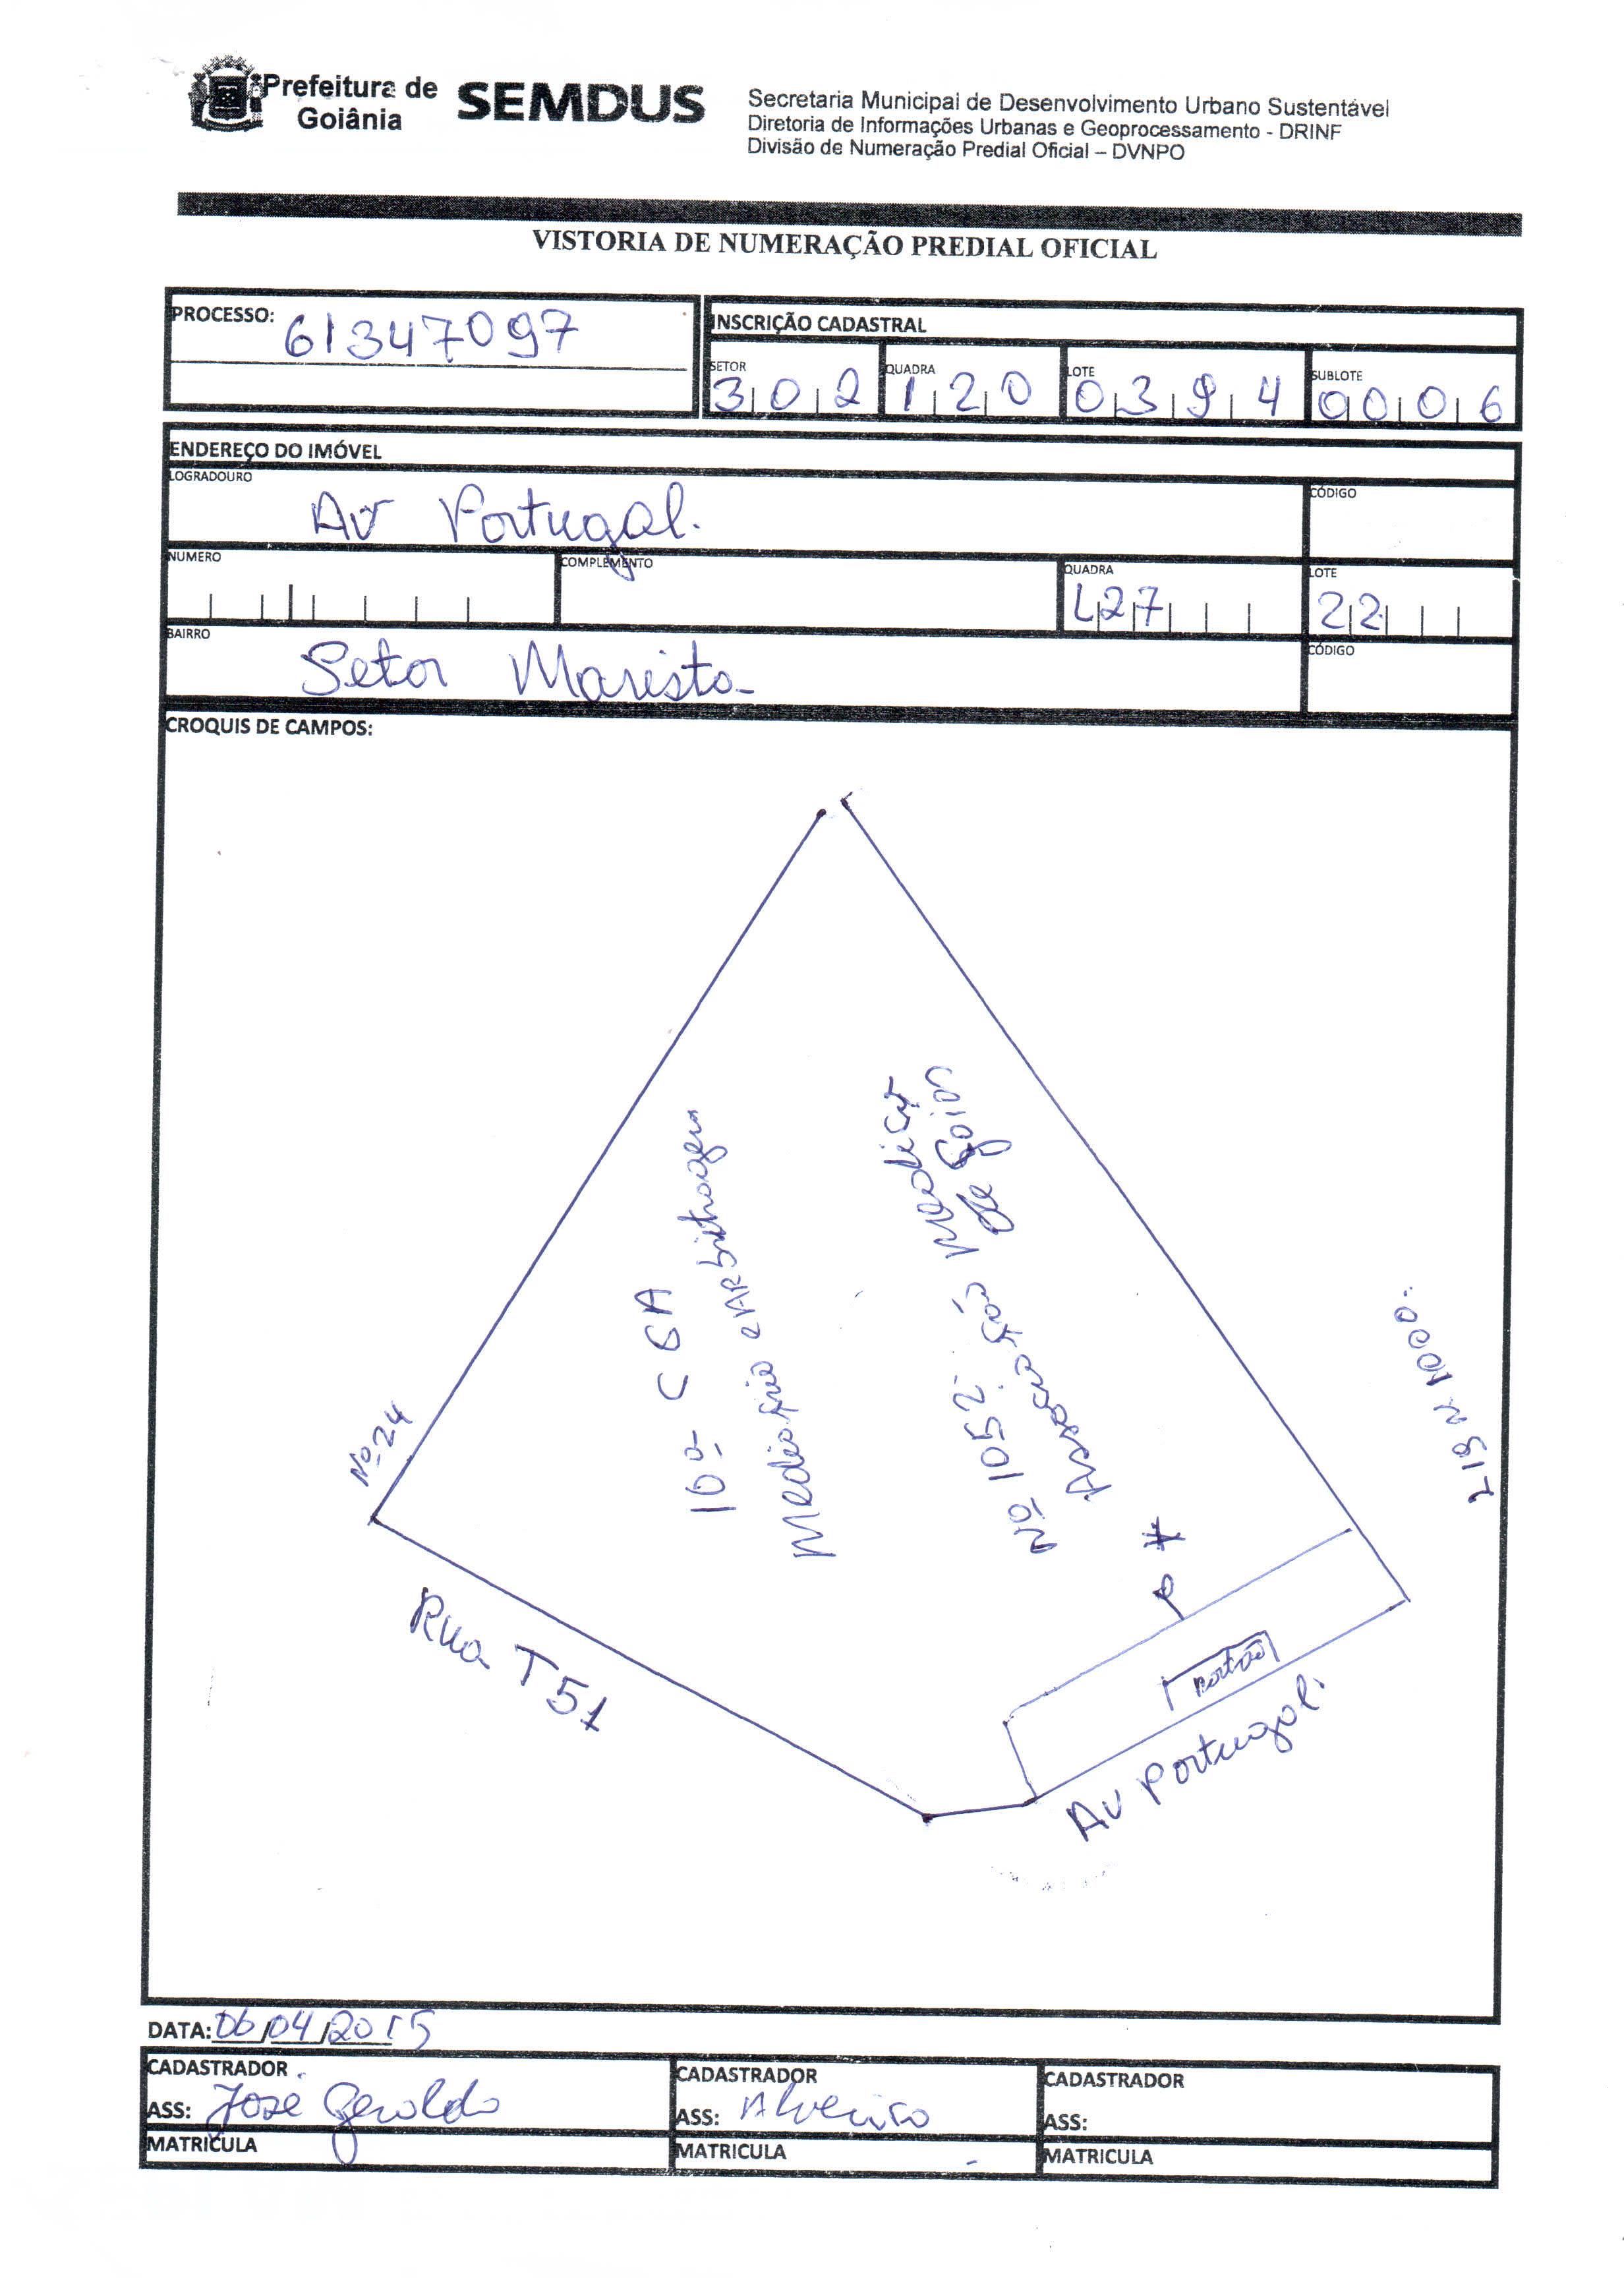 Prefeitura de
Goiânia
SEMDUS
Secretaria Municipal de Desenvolvimento Urbano Sustentável
Diretoria de Informações Urbanas e Geoprocessamento - DRINF
Divisão de Numeração Predial Oficial – DVNPO
VISTORIA DE NUMERAÇÃO PREDIAL OFICIAL
PROCESSO: 61347097
INSCRIÇÃO CADASTRAL
SETOR QUADRA LOTE SUBLOTE
302 120 0394 0006
ENDEREÇO DO IMÓVEL
LOGRADOURO CÓDIGO
Av Portugal.
NUMERO COMPLEMENTO QUADRA LOTE
L27 22
BAIRRO CÓDIGO
Setor Marista
CROQUIS DE CAMPOS:
Nº 24
10ª CCA
e Arbitragem
Nº 1052
Associação Medica
de Goias
L19 N 1000.
Rua T51
P
portão
Av Portugal.
DATA: 06/04/2015
CADASTRADOR CADASTRADOR CADASTRADOR
ASS: José Geraldo ASS: ASS:
MATRICULA MATRICULA MATRICULA